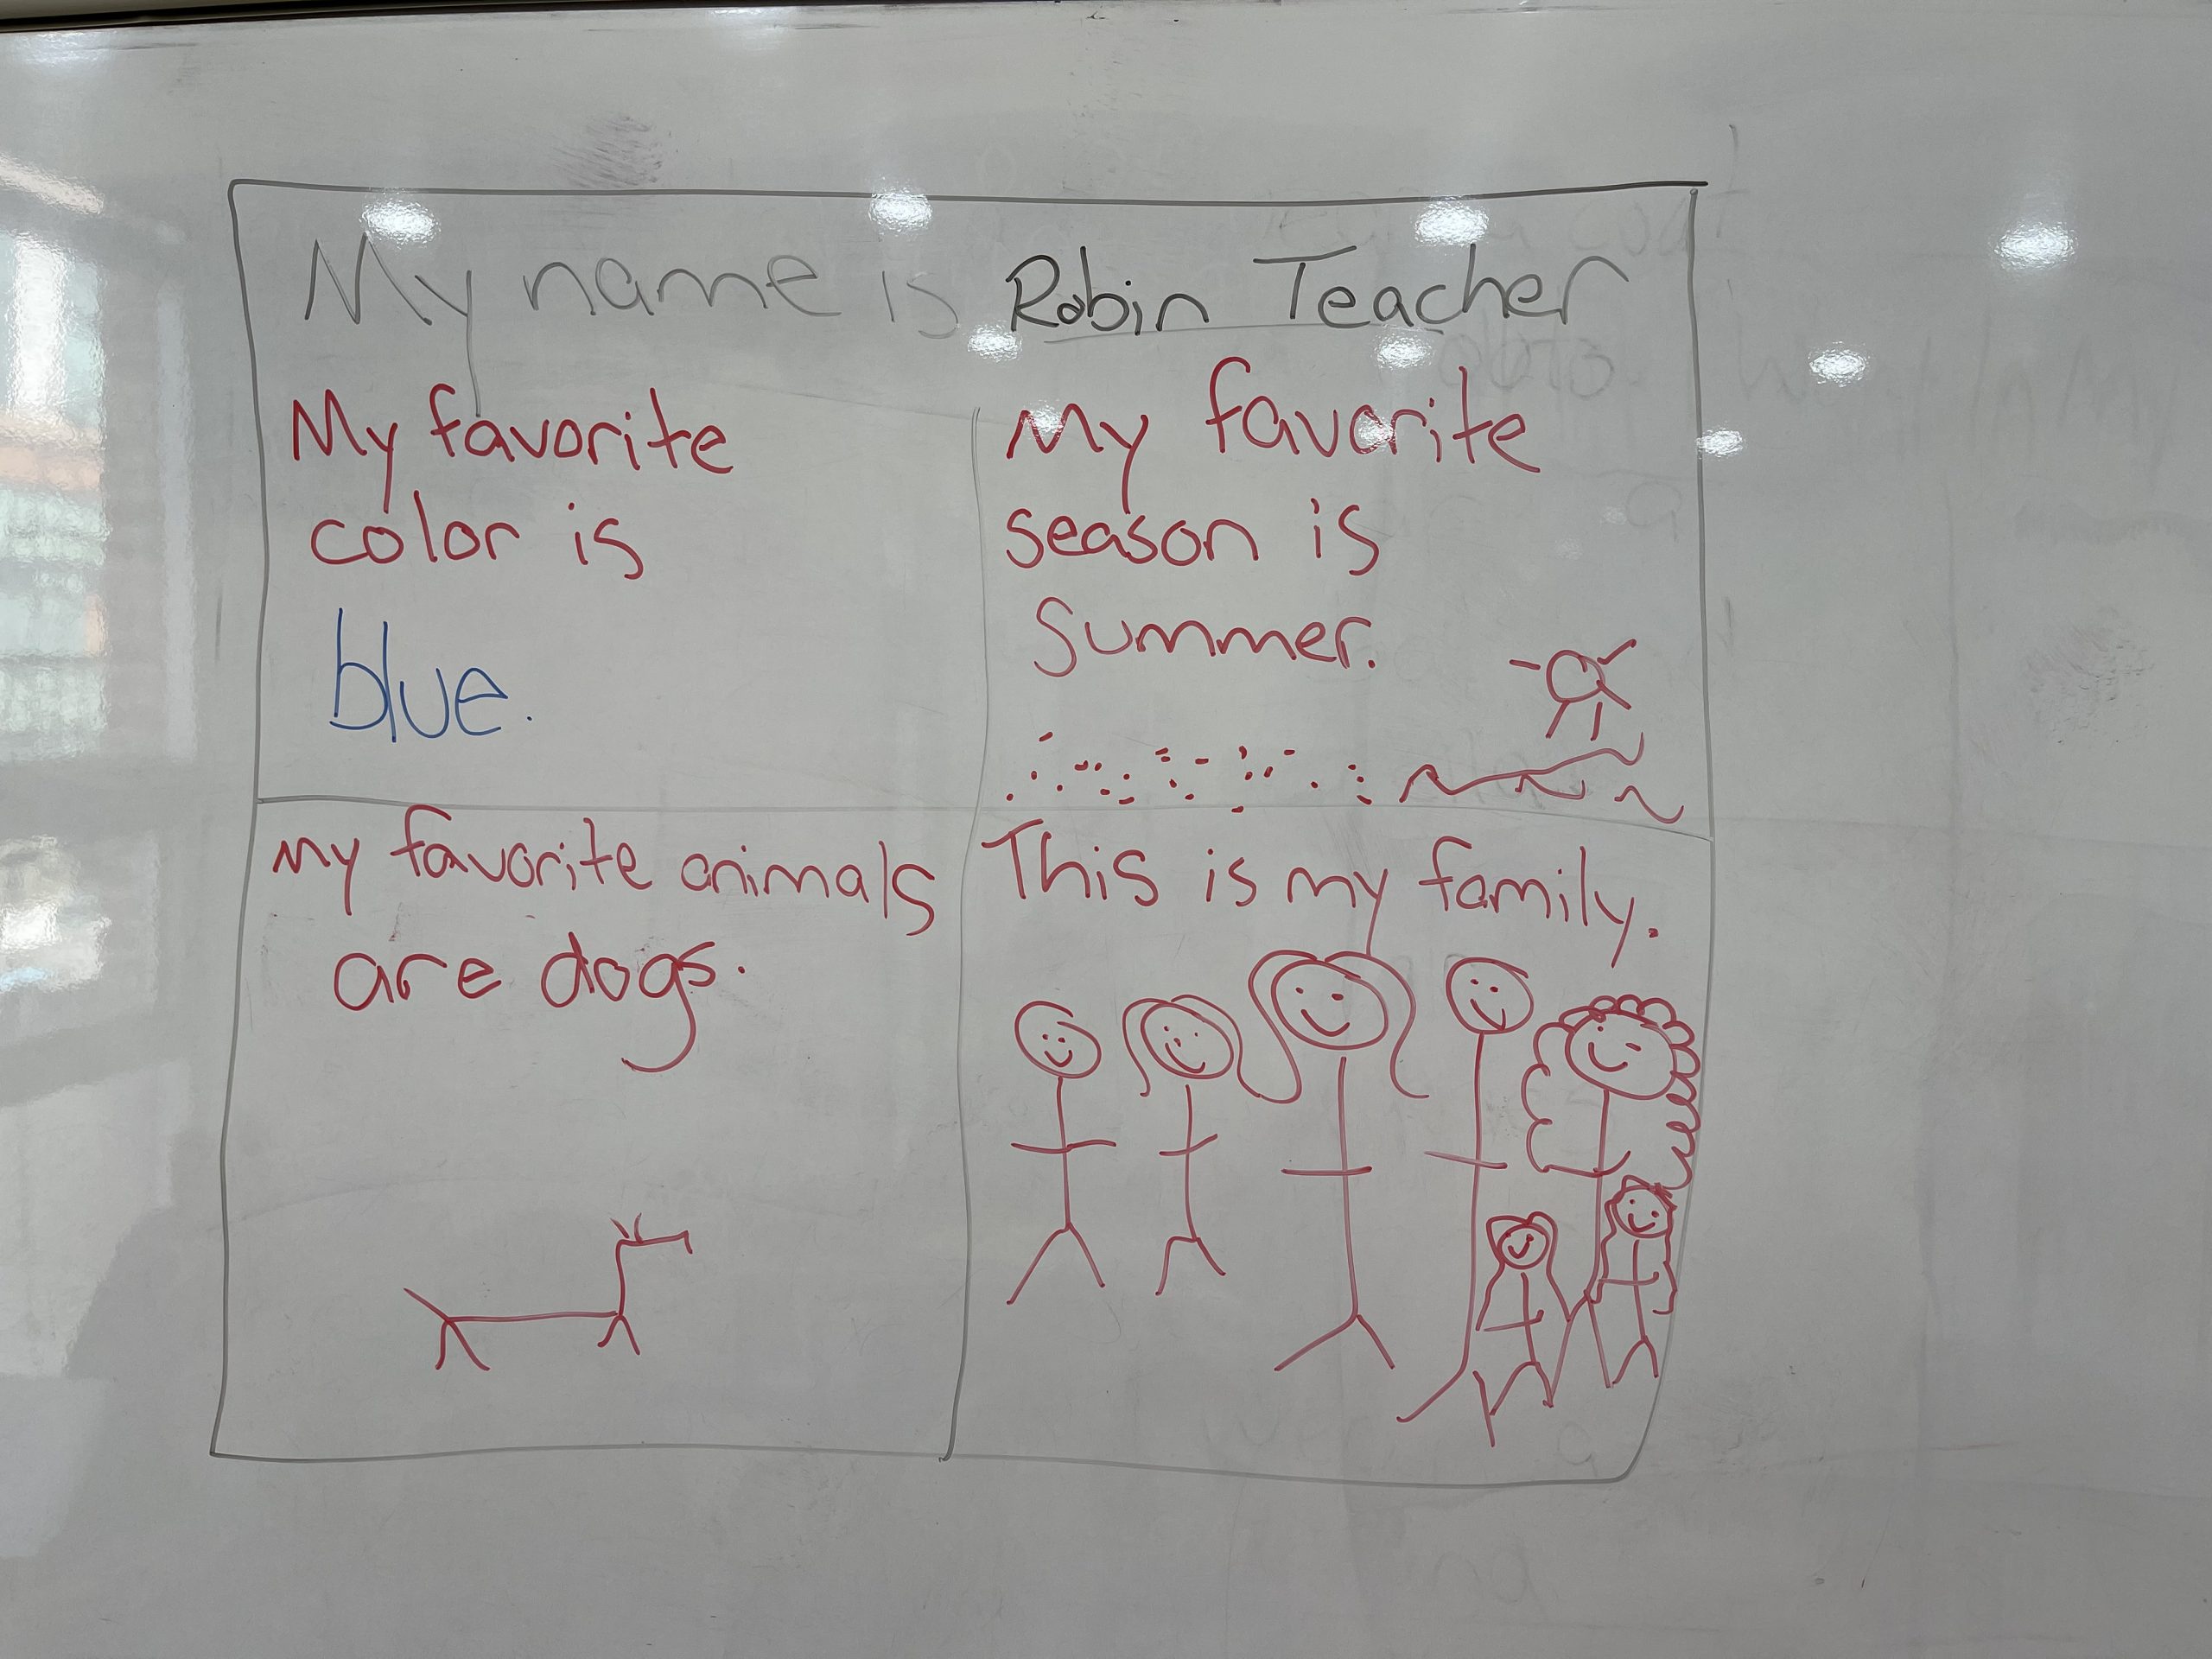 My name is Robin Teacher
My favorite
color is
blue.
My favorite
season is
Summer.
My favorite animals
are dogs.
This is my family.